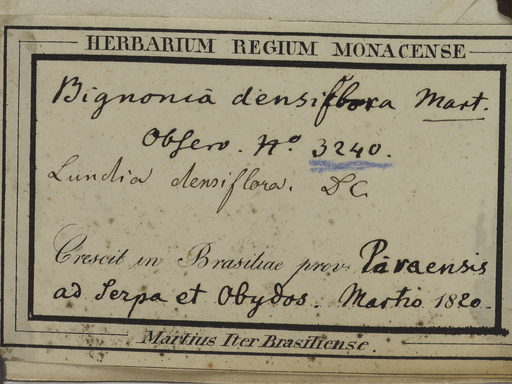 HERBARIUM REGIUM MONACENSE
Bignonia densiflora Mart.
Observ. No. 3240.
Lundia densiflora. DC
Crescit in Brasiliae prov. Paraensis
ad Serpa et Obydos. Martio 1820.
Martius Iter Brasiliense.